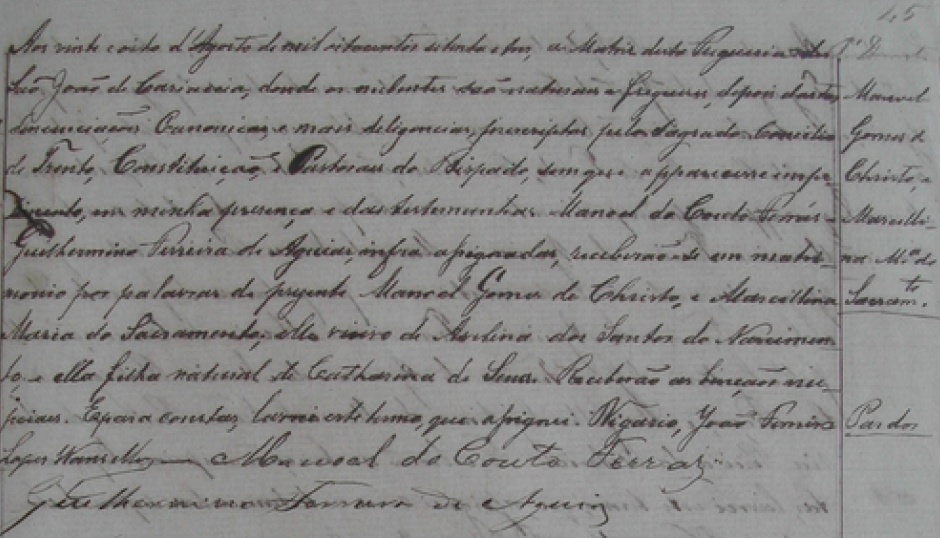 45
Aos vinte e oito d'Agosto de mil oitocentos setenta e tres, a Matriz desta Freguesia de
São João de Cariacica, donde os nubentes são naturaes e freguezes, depois das tres
denunciações Canonicas, e mais deligencias, prescriptas pelo Sagrado Concilio
de Trento, Constituição, e Pastoraes do Bispado, sem que apparecesse impe-
dimento, em minha presença e das testemunhas Manoel do Couto Ferraz e
Guilhermino Ferreira de Aguiar, infra assignadas, receberão-se em matri-
monio por palavras de prezente Manoel Gomes de Christo, e Marcellina
Maria do Sacramento; elle viuvo de Avelina dos Santos do Nascimen-
to, e ella filha natural de Catharina de Sena. Receberão as bençãos nu-
pciaes. E para constar, lavrei este termo, que assignei. O Vigario, João Ferreira
Lopes Wanzeller
Manoel do Couto Ferraz
Guilhermino Ferreira de Aguiar
Manoel
Gomes de
Christo, e
Marcelli-
na Mª do
Sacramto.
Pardos